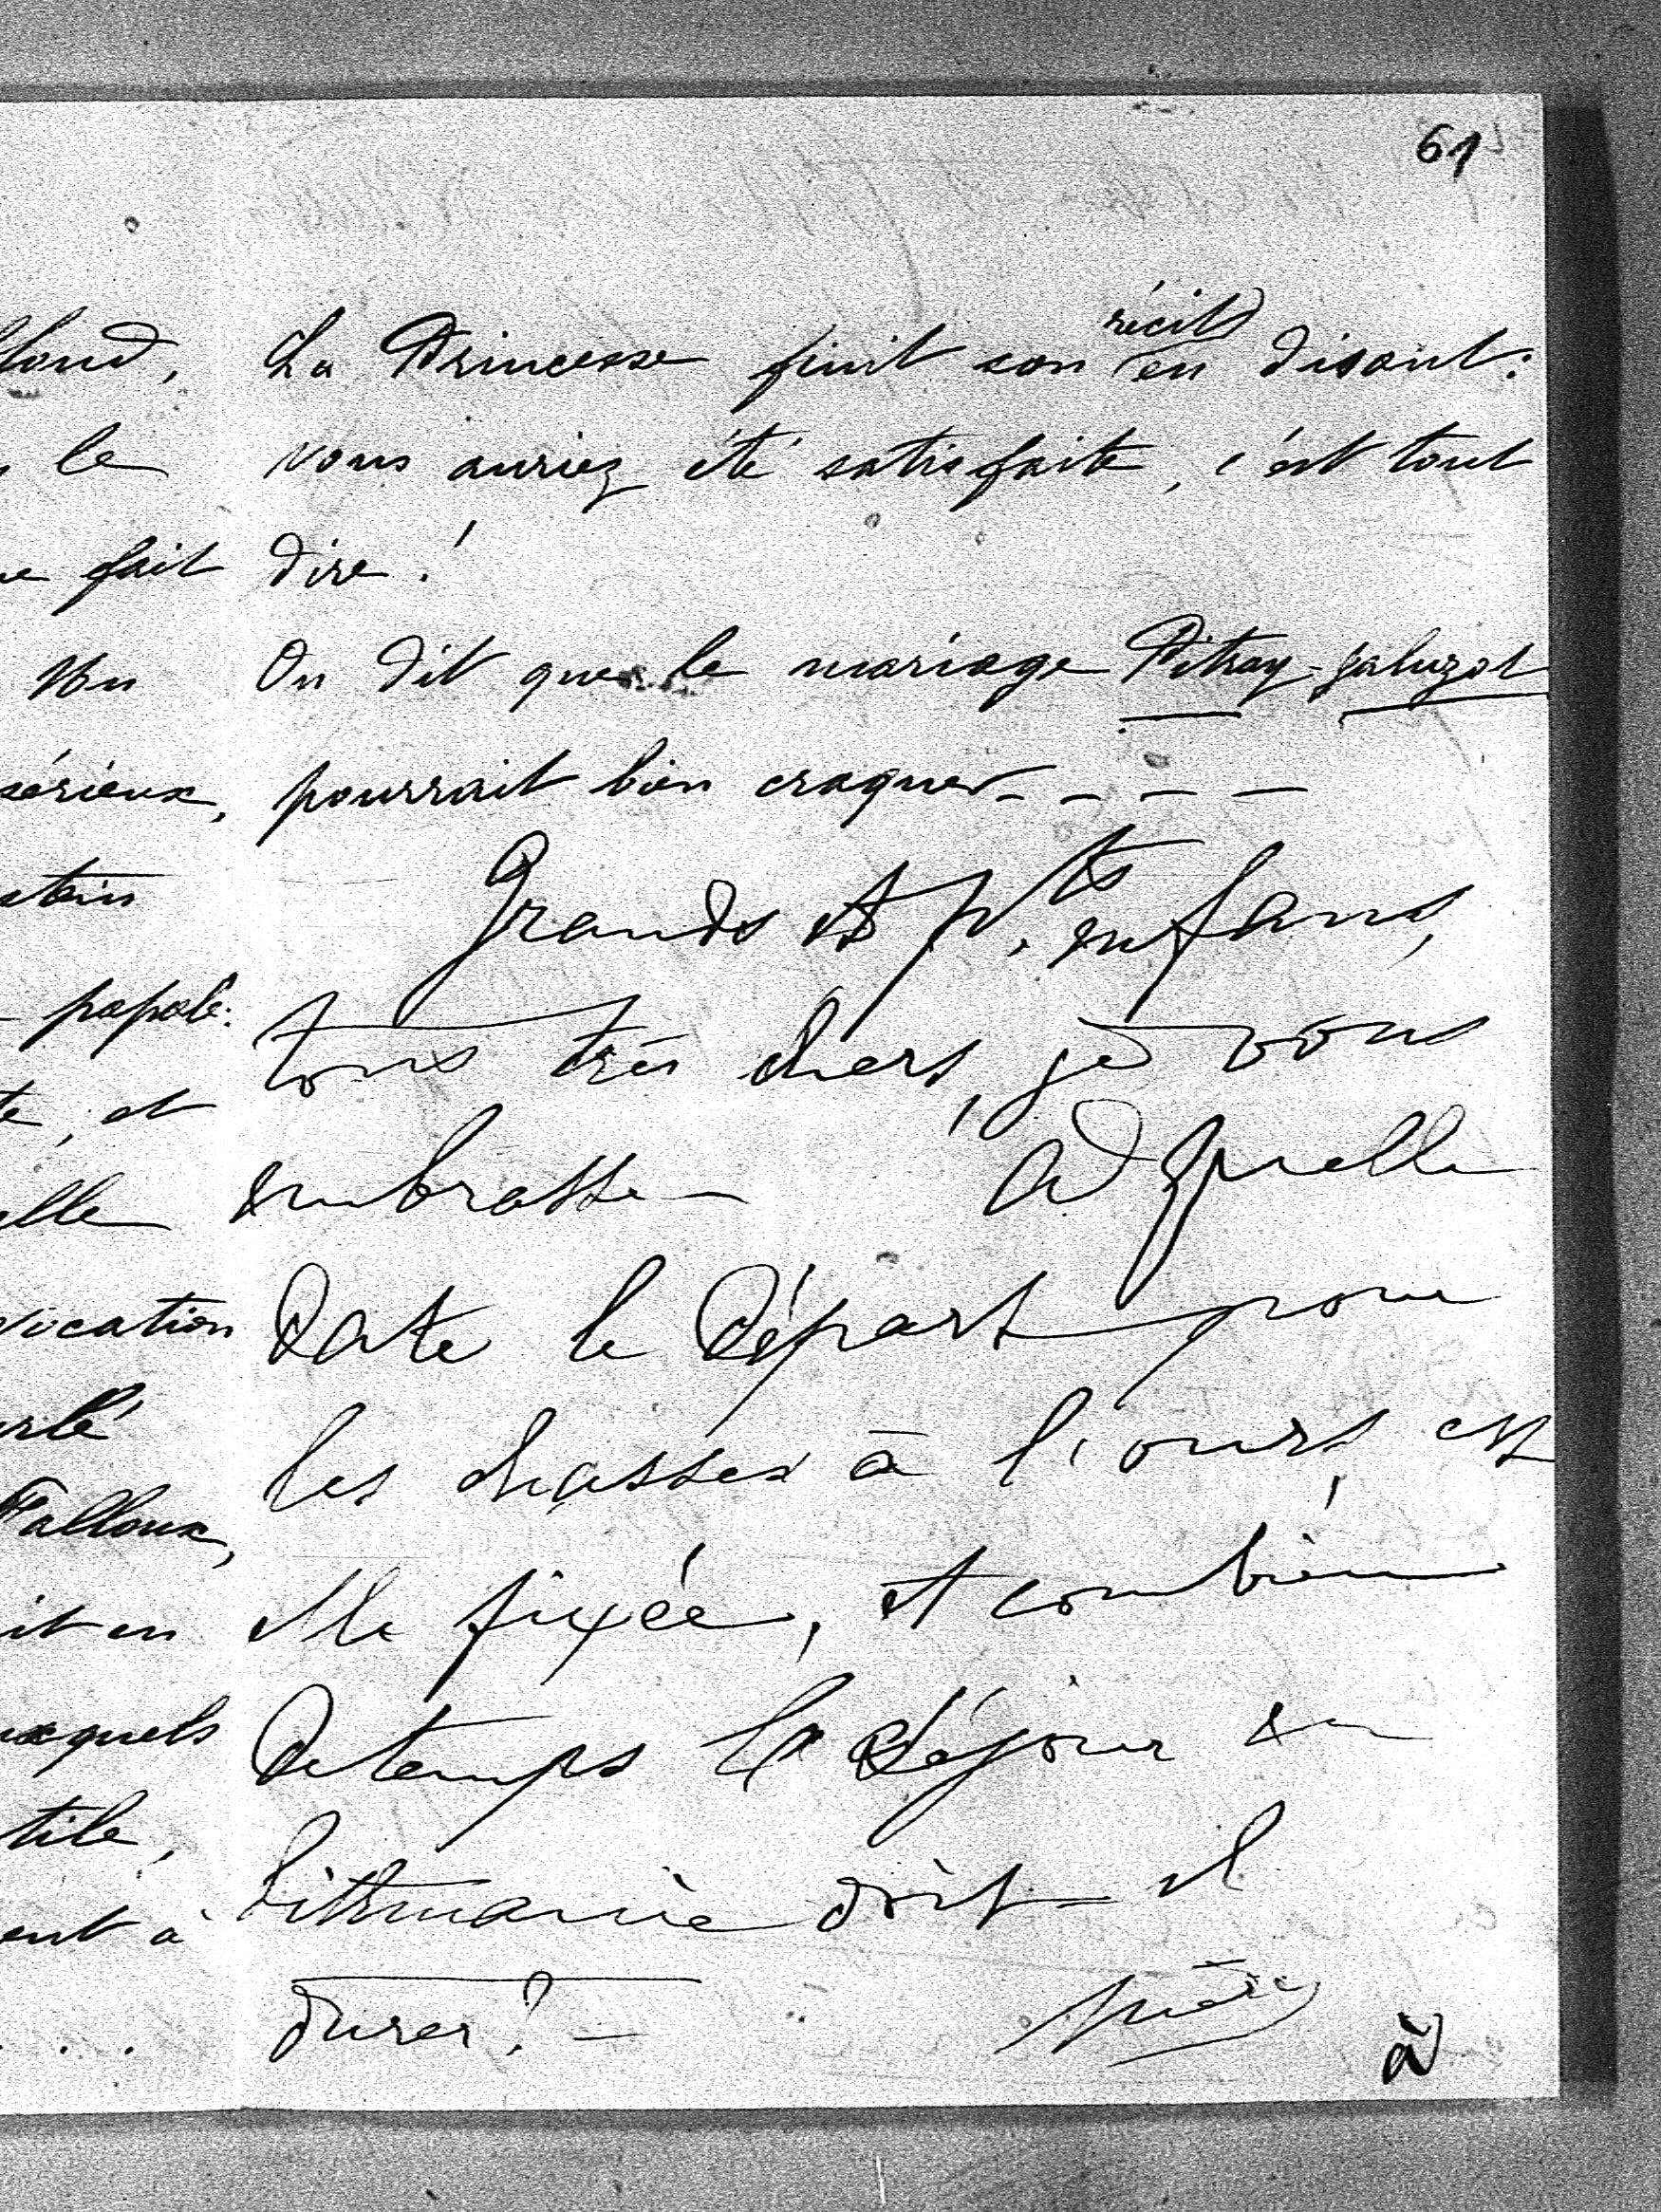 61
lond,
le
fait
Un
sérieux,
papale.
et
elle
vocation
Falloux,
it en
uxquels
tile,
ent à
La Princesse finit son récit en disant:
vous auriez été satisfaite, c'est tout
dire!
On dit que le mariage Pitray-Galuzot
pourrait bien craquer - - - -
Grands et pts enfans,
tous très chers, je vous
embrasse - A quelle
Date le Départ pour
les chasses à l'ours, est
elle fixée, et combien
De temps le séjour en
Lithuanie doit-il
Durer? -
Mère
à